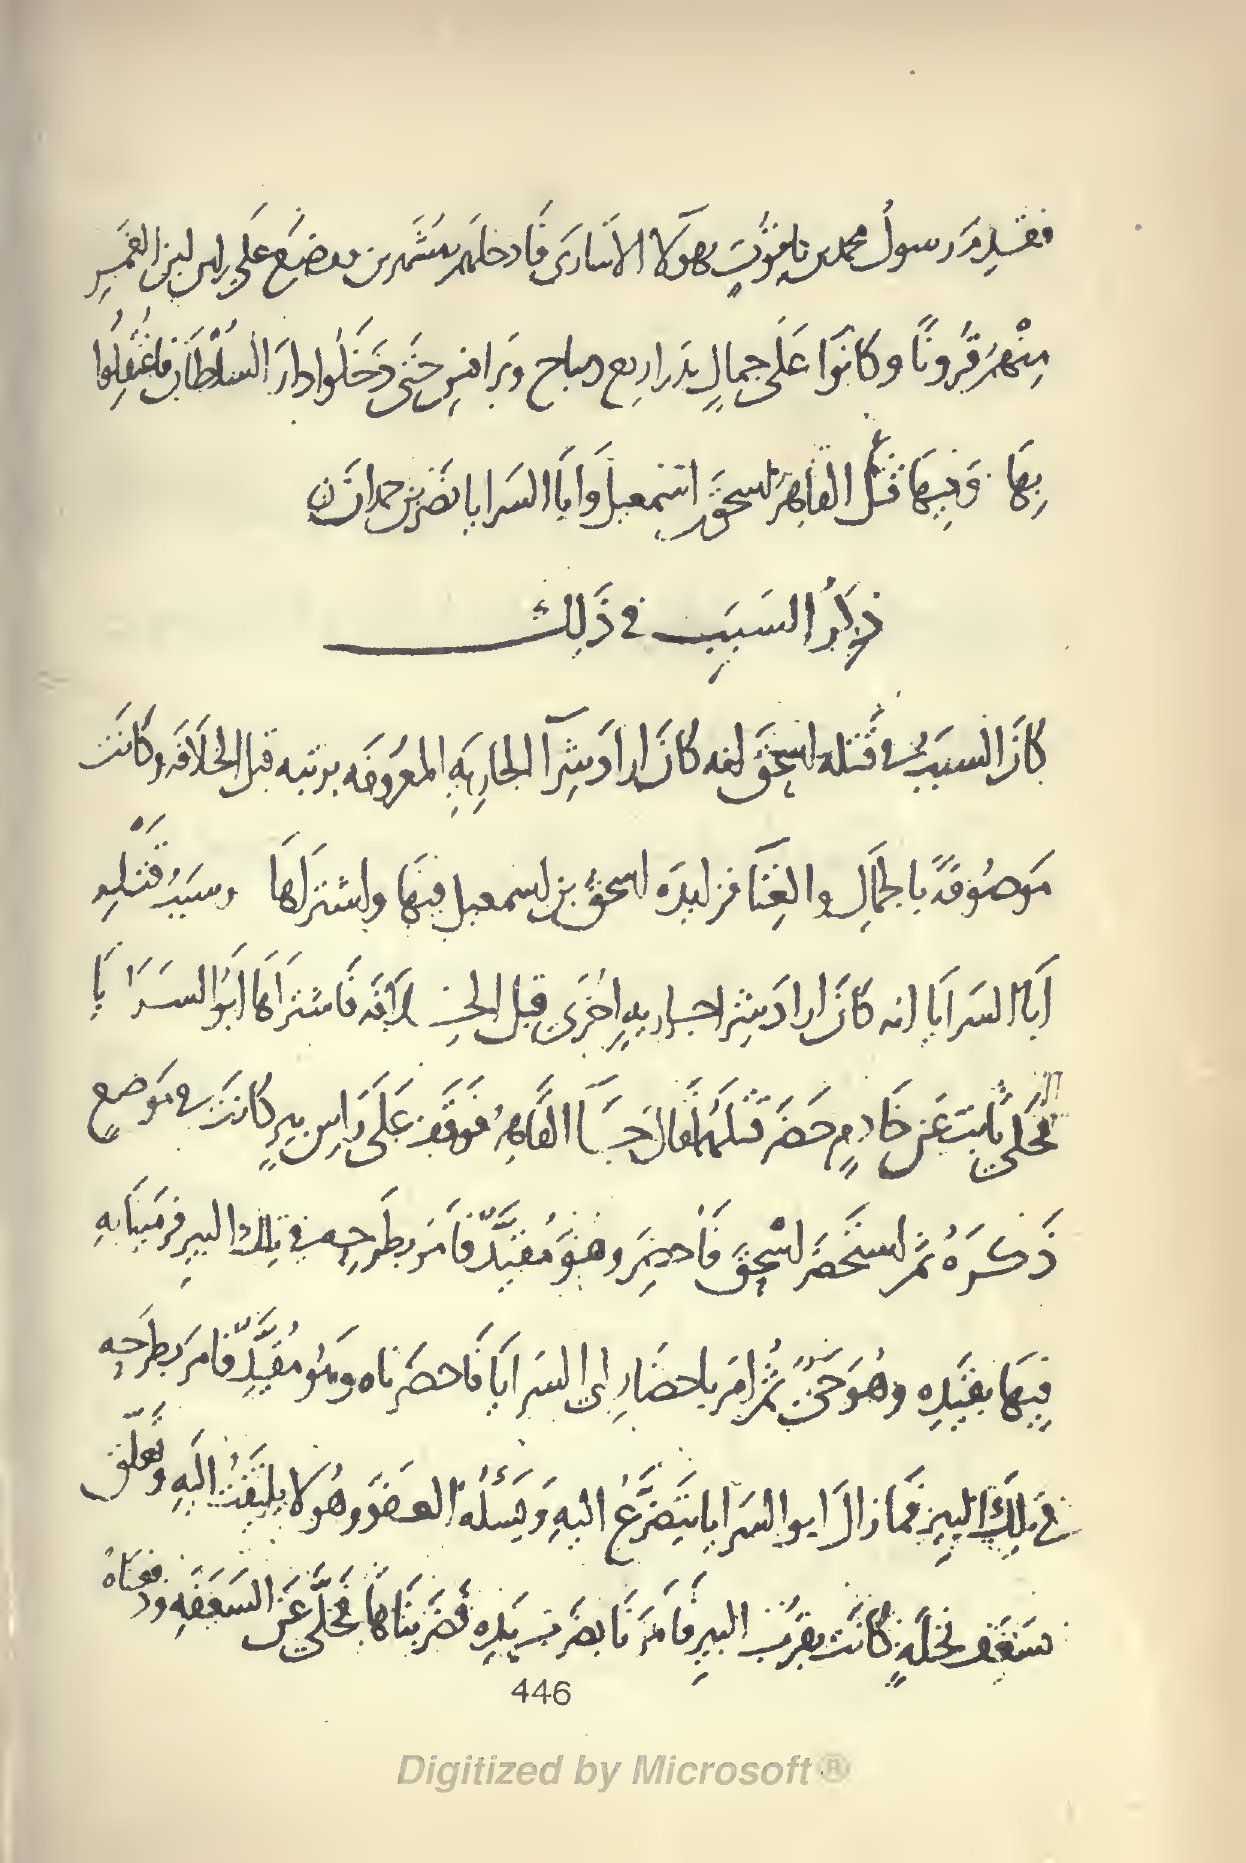 فقدم رسول محمد بن ياقوت بهولا الاسارى فادخلهم مشهرين ووضع على راس ابن القمر
منهم قرونا وكانوا على جمال بدراريع دباح وبرانس حتى دخلوا دار السلطان فاعتقلوا
بها وفيها قتل القاهر اسحق بن اسمعيل وابا السرايا نصر بن حمدان
ذكر السبب في ذلك
كان السبب في قتله اسحق انه كان اراد شرآ الجارية المعروفه برتبه قبل الخلافه وكانت
موصوفة بالجمال والغنا فزايده اسحق بن اسمعيل فيها واشتراها وسبب قتله
ابا السرايا انه كان اراد شرا جارية اخرى قبل الخلافه فاشتراها ابو السرايا
فحكى ثابت عن خادم حضر قتلهما قال جآ القاهر فوقف على راس بير كانت في موضع
ذكره ثم استحضر اسحق فاحضر وهو مقيد فامر بطرحه في تلك البير فرمينا به
فيها بقيده وهو حي ثم امر باحضار ابي السرايا فاحضرناه وهو مقيد فامر بطرحه
في تلك البير فما زال ابو السرايا يتضرع اليه ويسئله العفو وهو لا يلتفت اليه وتعلق
بسعف نخلة كانت بقرب البير فامرنا بضرب يده فضربناها فخلى عن السعفه ودفعناه
446
Digitized by Microsoft®